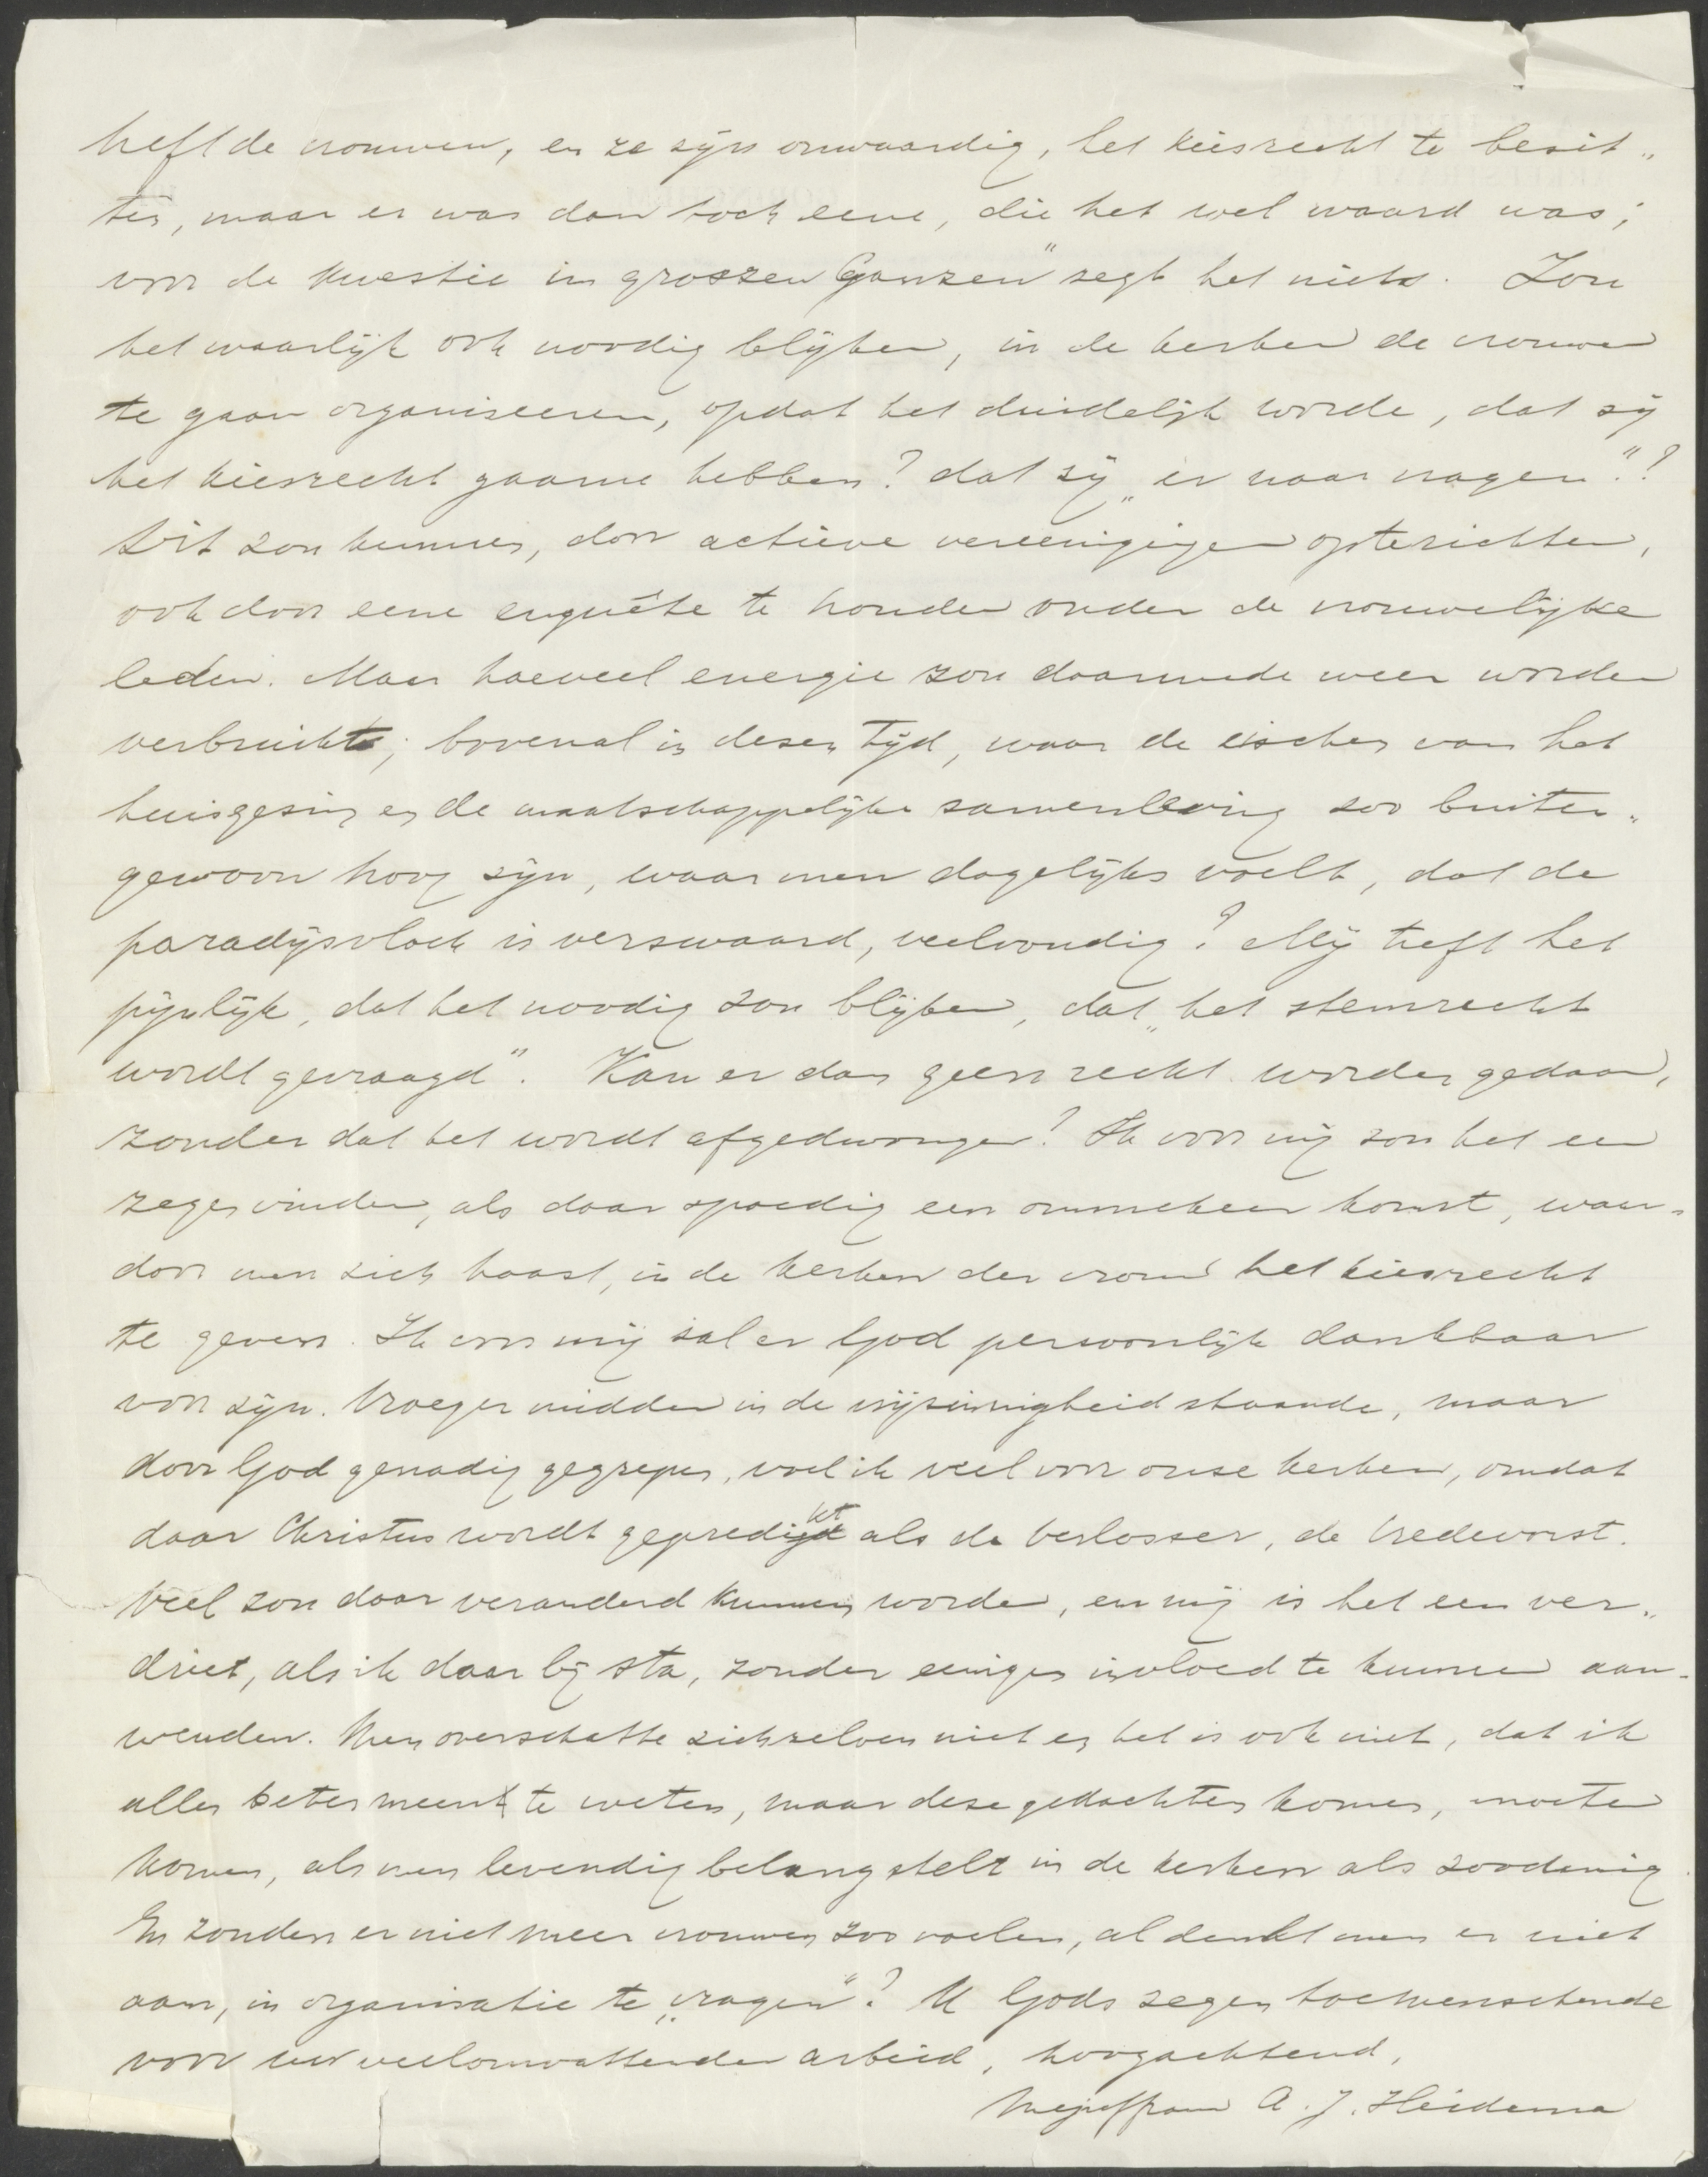 heft de vrouwen, en ze zijn onwaardig, het kiesrecht te bezit„
ten, maar er was dan toch eene, die het wel waard was;
voor de kwestie im groszen Ganzen" zegt het niets. Zou
het waarlijk ook noodig blijken, in de kerken de vrouwen
te gaan organiseeren, opdat het duidelijk worde, dat zij
het kiesrecht gaarne hebben? dat zij „er naar vragen"?
Dit zou kunnen, door actieve vereenigingen opterichten,
ook door eene enquête te houden onder de vrouwelijke
leden. Maar hoeveel energie zou daarmede weer worden
verbruikt; bovenal in dezen tijd, waar de eischen van het
huisgezin en de maatschappelijke samenleving zoo buiten„
gewoon hoog zijn, waar men dagelijks voelt, dat de
paradijsvloek is verzwaard, veelvoudig? Mij treft het
pijnlijk, dat het noodig zou blijken, dat „het stemrecht
wordt gevraagd". Kan er dan geen recht worden gedaan,
zonder dat het wordt afgedwongen? Ik voor mij zou het een
zegen vinden, als daar spoedig een ommekeer komt, waar-
door men zich haast, in de kerken der vrouw het kiesrecht
te geven. Ik voor mij zal er God persoonlijk dankbaar
voor zijn. Vroeger midden in de vrijzinnigheid staande, maar
door God genadig gegrepen, voel ik veel voor onze kerken, omdat
daar Christus wordt gepredikt als de Verlosser, de Vredevorst.
Veel zou daar veranderd kunnen worden, en mij is het een ver„
driet, als ik daar bij sta, zonder eenigen invloed te kunnen aan-
wenden. Men overschatte zichzelven niet en het is ook niet, dat ik
alles beter meen te weten, maar deze gedachten komen, moeten
komen, als men levendig belang stelt in de kerken als zoodanig.
En zouden er niet meer vrouwen zoo voelen, al denkt men er niet
aan, in organisatie te „vragen"? U Gods zegen toewenschende
voor uw veelomvattenden arbeid, hoogachtend,
Mejuffrouw A. J. Heidema